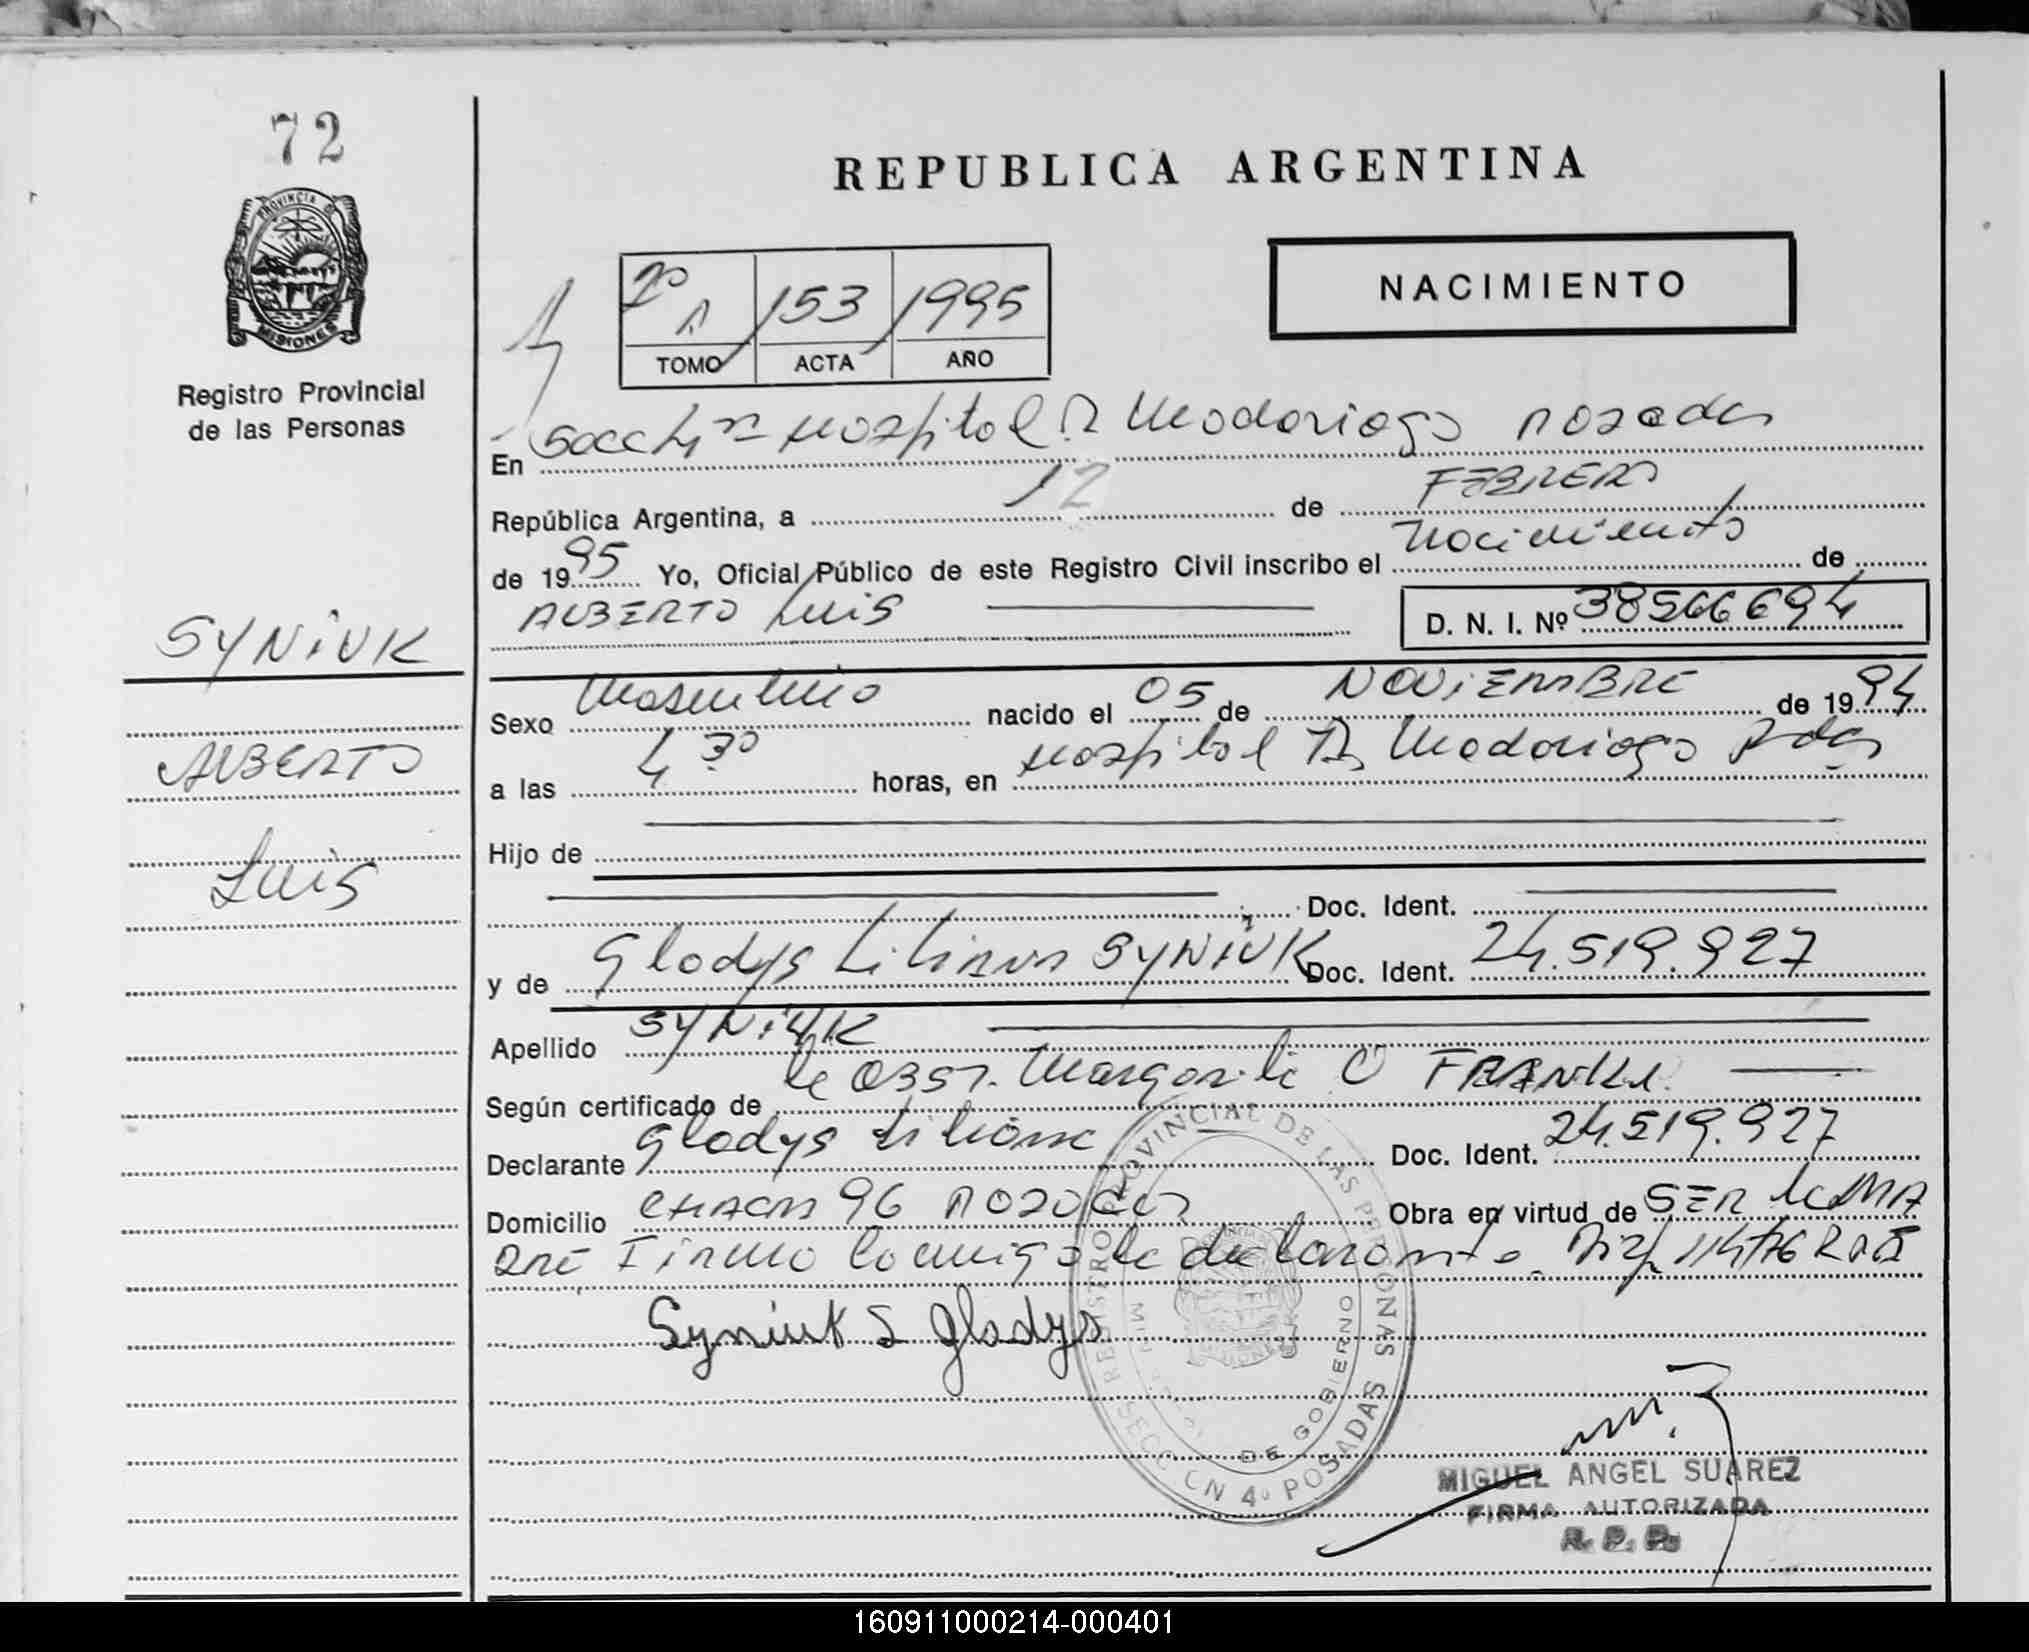 72
PROVINCIA DE
MISIONES
Registro Provincial
de las Personas
SYNIUK
ALBERTO
Luis
REPUBLICA ARGENTINA
NACIMIENTO
153 1995
TOMO ACTA AÑO
En Secc 4ta Hospital R Madariaga Posadas
República Argentina, a 12 de FEBRERO
de 1995 Yo, Oficial Público de este Registro Civil inscribo el Nacimiento de
ALBERTO Luis D. N. I. Nº 38566694
Sexo Masculino nacido el 05 de NOVIEMBRE de 1994
a las 4 30 horas, en Hospital R Madariaga Pdas
Hijo de
Doc. Ident.
y de Gladys Liliana SYNIUK Doc. Ident. 24.519.927
Apellido SYNIUK
Según certificado de la OBST. Margarita
Declarante Gladys Liliana Doc. Ident. 24.519.927
Domicilio CHACRA 96 POSADAS Obra en virtud de SER la MADRE
Firma conmigo la declarante.
Syniuk L Gladys
REGISTRO PROVINCIAL DE LAS PERSONAS
DE GOBIERNO
SECCCN 4º POSADAS
MIGUEL ANGEL SUAREZ
FIRMA AUTORIZADA
R. P. P.
160911000214-000401